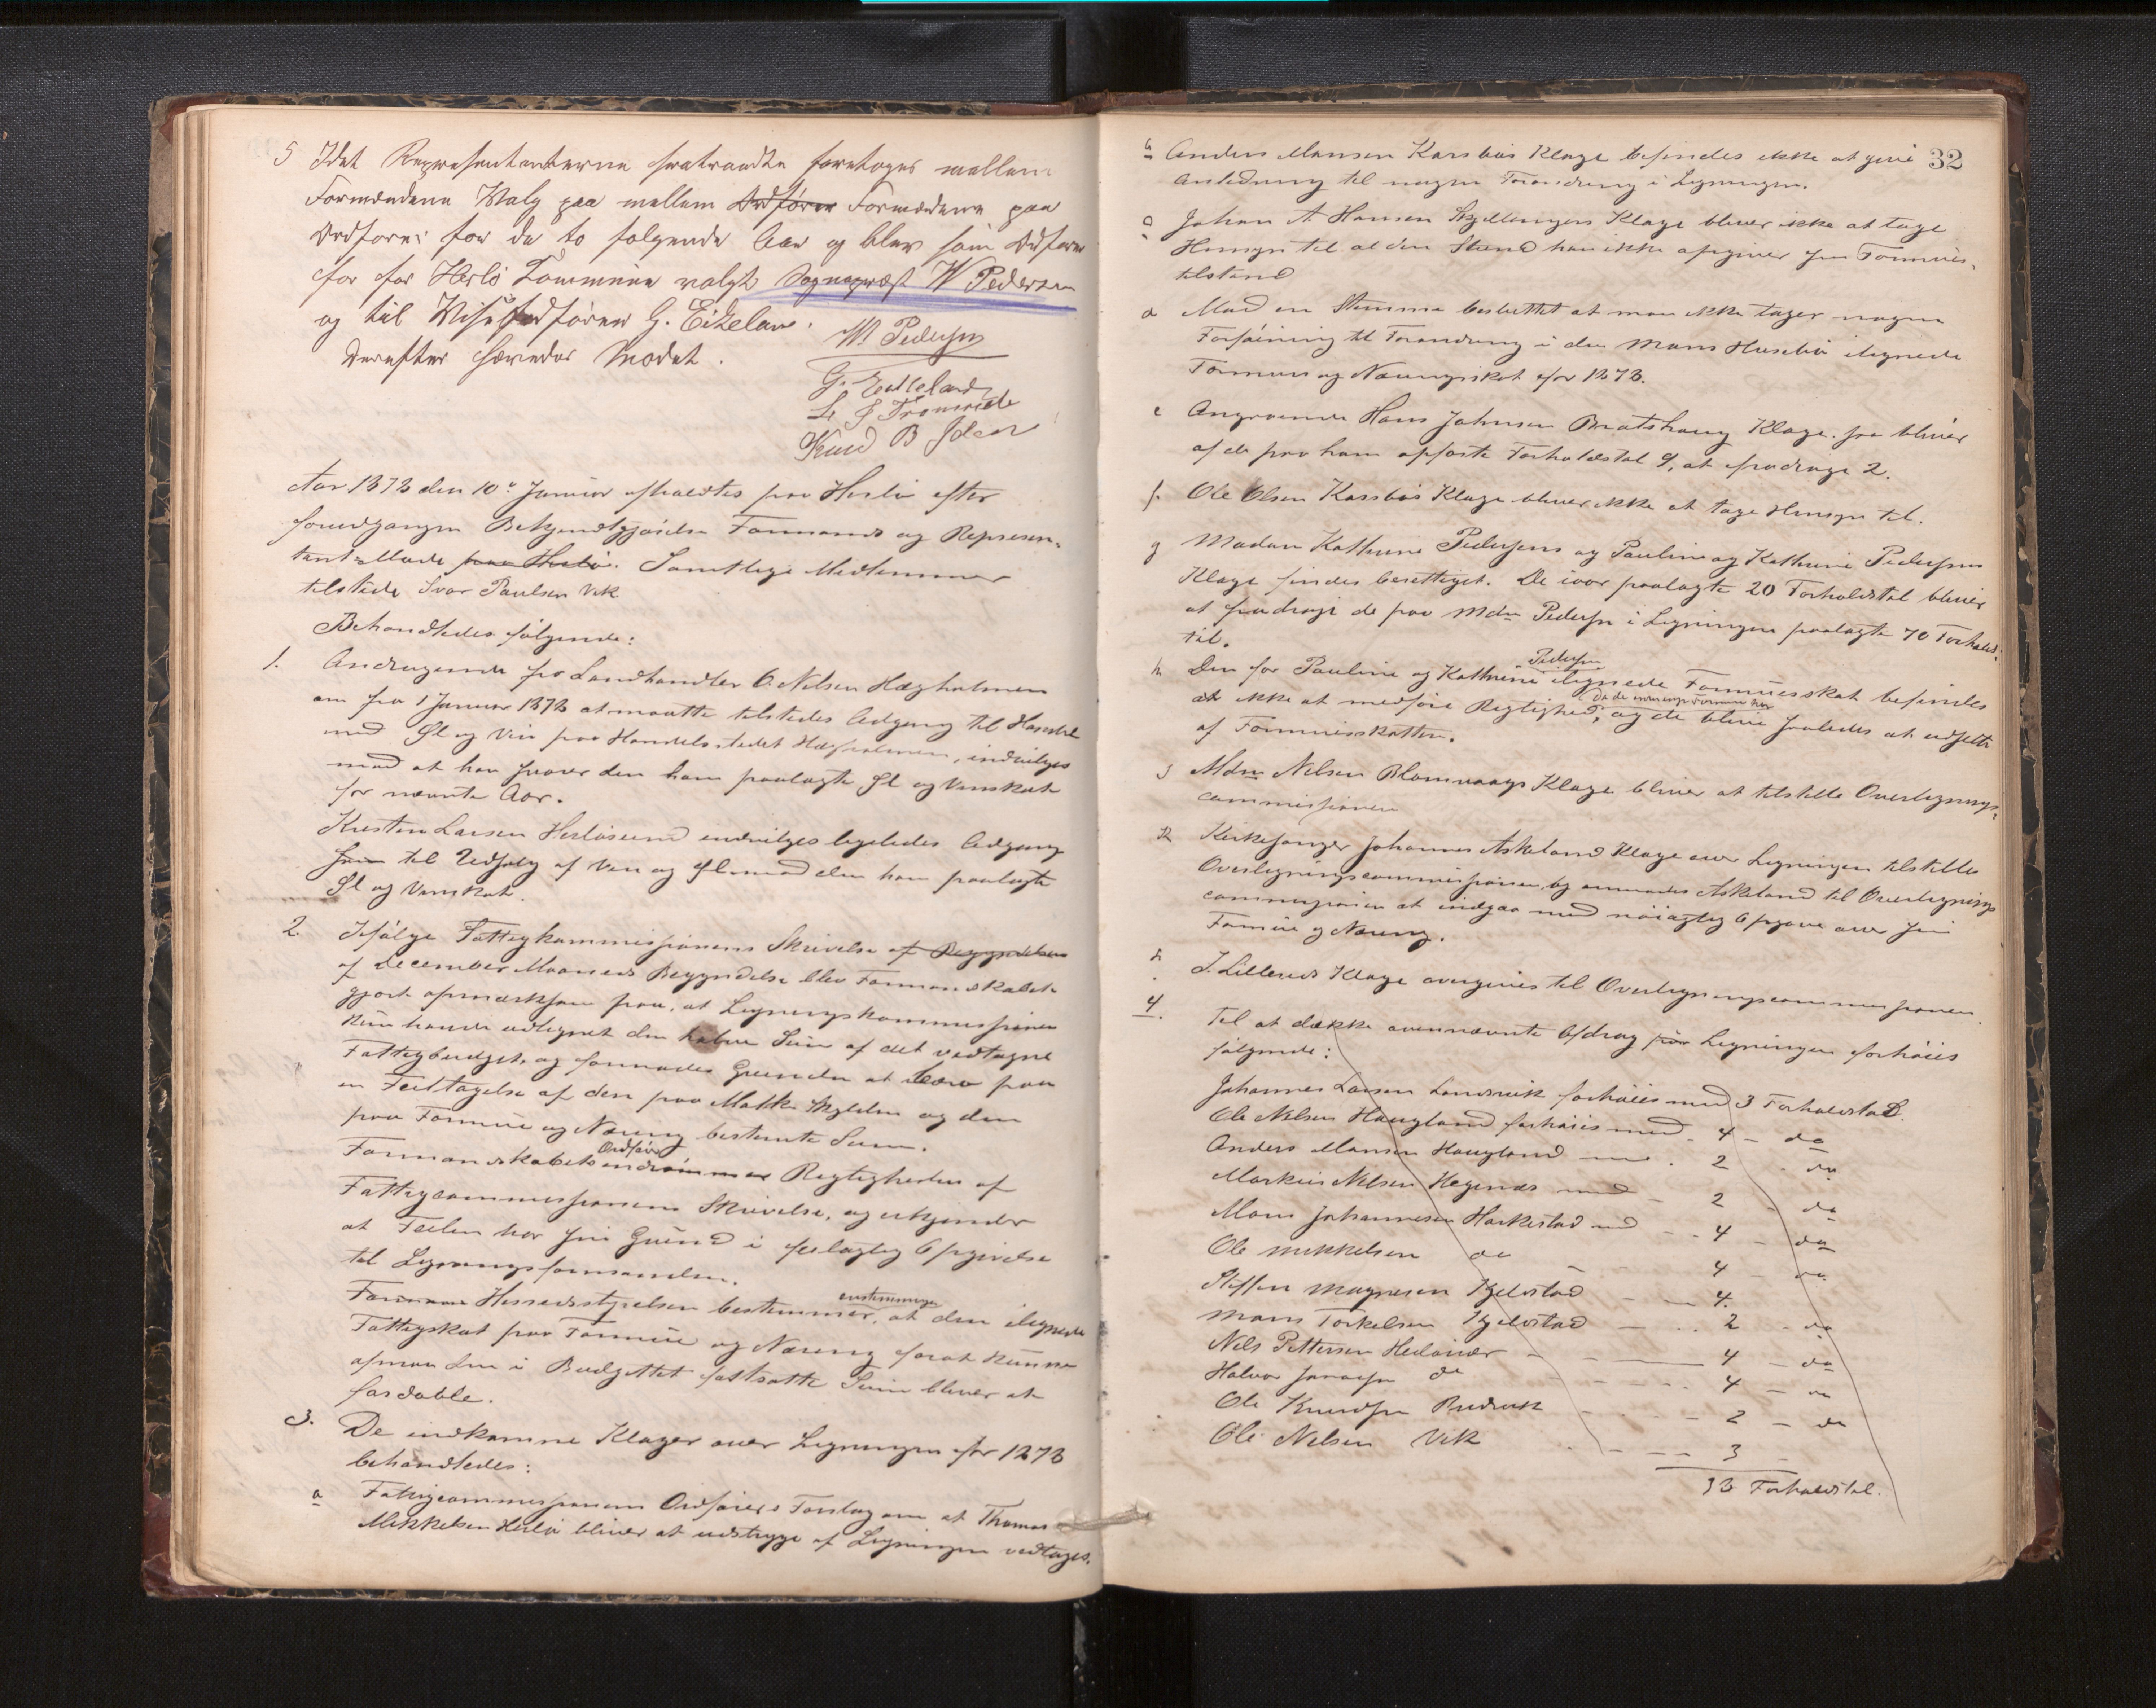 5 Idet Representanterne fratraadte foretoges mellem
Formændene Valg paa mellem Ordfører Formændene paa
Ordfører for de to følgende Aar og blev som Ordfører
for for Herlø Commune valgt Sognepræst W Pedersen
og til Viseordfører G. Eikeland.
Derefter hævedes Mødet.
W. Pedersen
G. Eikeland
Knud B Idsø
Aar 1873 den 10de Januar afholdtes paa Herlø efter
foregangen Bekjendtgjørelse Formands og Represen-
tant-Møde paa Herlø. Samtlige Medlemmer
tilstede Ivar Paulsen Vik
Behandledes følgende:
1. Andragende fra Landhandler O. Nilsen Hægholmen
om fra 1 Januar 1873 at maatte tilstedes Adgang til Handel
med Øl og Vin paa Handelsstedet Hægholmen, indvilges
mod at han svarer den ham paalagte Øl og Vinskat
for nævnte Aar.
Kristen Larsen Herløsund indvilges ligeledes Adgang
til Udsalg af Vin og Øl mod den ham paalagte
Øl og Vinskat.
2. Ifølge Fattigkommissionens Skrivelse af Begyndelsen
af December Maaneds Begyndelse blev Formandskabet
gjort opmærksom paa, at Ligningskommissionen
kun havde udlignet den halve Sum af det vedtagne
Fattigbudget, og formodes Grunden at være paa
en Feiltagelse af den paa Matr. Skylden og den
paa Formue og Næring bestemte Sum.
Formandskabets Ordfører indrømmer Rigtigheden af
Fattigcommissionens Skrivelse, og erkjender
at Feilen har sin Grund i feilagtig Opgivelse
til Ligningsformanden.
Herredsstyrelsen bestemmer enstemmigen, at den ilignede
Fattigskat paa Formue og Næring forat kunne
opnaa den i Budgettet fastsatte Sum bliver at
fordoble.
3. De indkomne Klager over Ligningen for 1873
behandledes:
a Fattigcommissionens Ordførers Forslag om at Thomas
Mikkelsen Herlø bliver at udstryge af Ligningen vedtages.
32
b Anders Monsen Karsbøs Klage befindes ikke at give
Anledning til nogen Forandring i Ligningen.
c Johan A Hansen Skjellangers Klage bliver ikke at tage
Hensyn til al den Stund han ikke opgiver sin Formues-
tilstand
d Mod en Stemme besluttet at man ikke tager nogen
Forføining til Forandring i den Mons Husebø ilignede
Formues og Næringsskat for 1873.
e Angaaende Hans Johnsen Bratshaug Klage, saa bliver
af de paa ham opførte Forholdstal 9, at fradrage 2.
f. Ole Olsen Karsbøs Klage bliver ikke at tage Hensyn til.
g Madam Kathrine Pedersens og Pauline og Kathrine Pedersens
Klage findes berettiget. De hver paalagte 20 Forholdstal bliver
at fradrage de paa Mdm Pedersen i Ligningen paalagte 70 Forholds-
tal.
h Den for Pauline og Kathrine Pedersen ilignede Formuesskat befindes
at ikke at medføre Rigtighed, da de ingen Formue har og de blive saaledes at udslette
af Formuesskatten.
i Mdm Nilsen Blomvaags Klage bliver at tilstille Overlignings-
commissionen
k Kirkesanger Johannes Askeland Klage over Ligningen tilstilles
Overligningscommissionen, og anmodes Askeland til Overlignings
commissionen at indgaa med nøiagtig Opgave over sin
Formue og Næring.
J. Lillereds Klage overgives til Overligningscommissionen.
4. Til at dække ovennævnte Afdrag paa Ligningen forhøies
følgende:
Johannes Larsen Landsvik forhøies med 3 Forholdstal.
Ole Nilsen Haugland forhøies med - 4 - do
Anders Monsen Haugland med - 2 - do
Markus Nilsen Hegenæs med - 2 - do
Mons Johannesen Harkestad med - 4 - do
Ole Mikkelsen do - 4 - do
Steffen Magnesen Kjelstad - 4.
Mons Torkelsen Kjelstad - 2 - do
Nils Pettersen - 4 - do
Halvor do - 4 - do
Ole Knudsen - 2 - do
Ole Nilsen Vik - 3 -
Forholdstal.